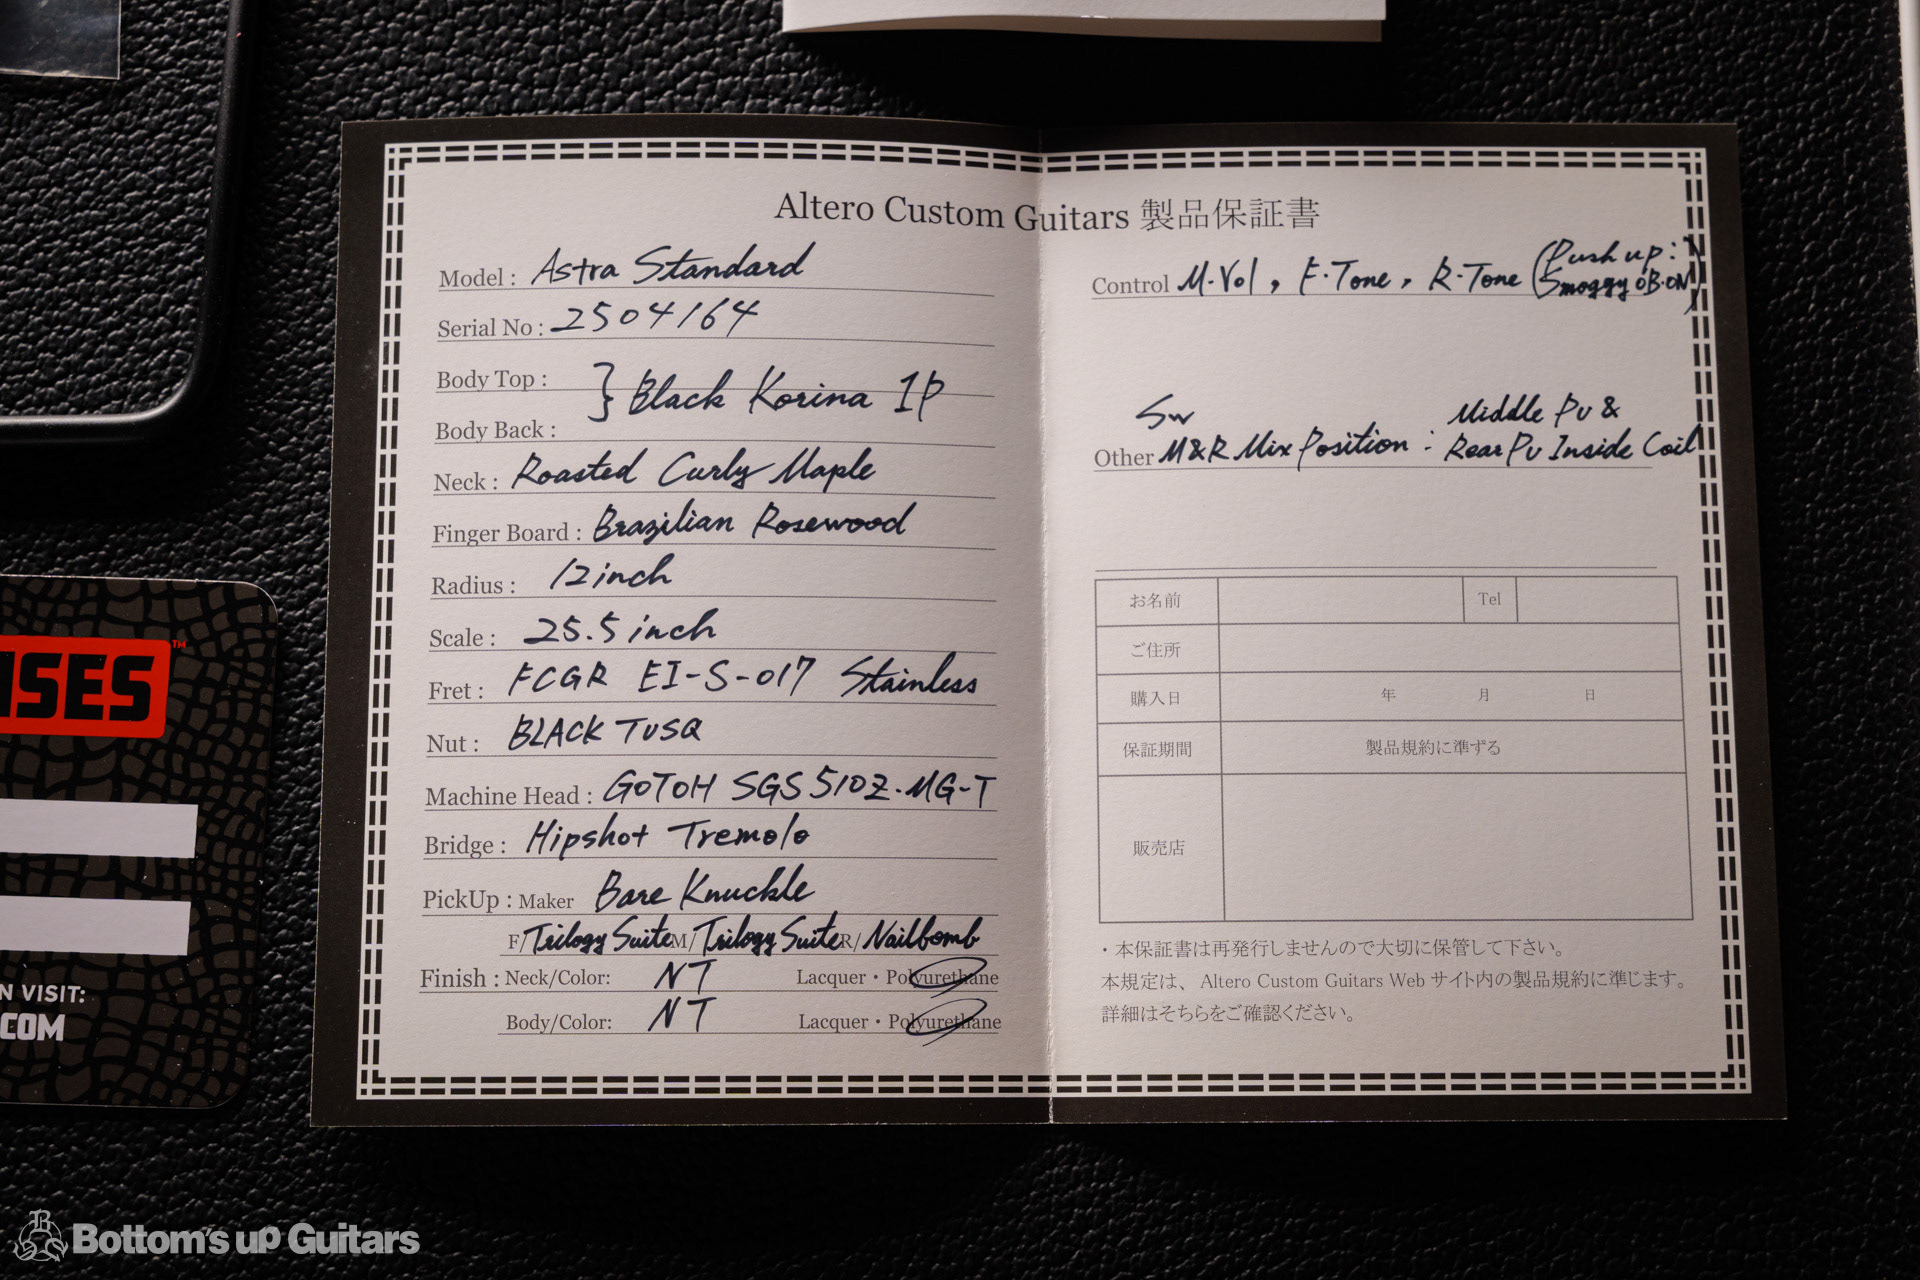 Altero Custom Guitars 製品保証書
Model : Astra Standard
Serial No : 2504164
Body Top :
} Black Korina 1P
Body Back :
Neck : Roasted Curly Maple
Finger Board : Brazilian Rosewood
Radius : 12 inch
Scale : 25.5 inch
Fret : FCGR EI-S-017 Stainless
Nut : BLACK TUSQ
Machine Head : GOTOH SGS510Z・MG-T
Bridge : Hipshot Tremolo
PickUp : Maker Bare Knuckle
F/ Trilogy Suite M/ Trilogy Suite R/ Nailbomb
Finish : Neck/Color: NT Lacquer・Polyurethane
Body/Color: NT Lacquer・Polyurethane
Control M.Vol, F.Tone, R.Tone (Push up:
Smoggy OB.ON)
Sw Middle PU &
Other M&R Mix Position : Rear PU Inside Coil
お名前 Tel
ご住所
購入日 年 月 日
保証期間 製品規約に準ずる
販売店
・本保証書は再発行しませんので大切に保管して下さい。
本規定は、Altero Custom Guitars Web サイト内の製品規約に準じます。
詳細はそちらをご確認ください。
ISES™
N VISIT:
.COM
Bottom's uP Guitars